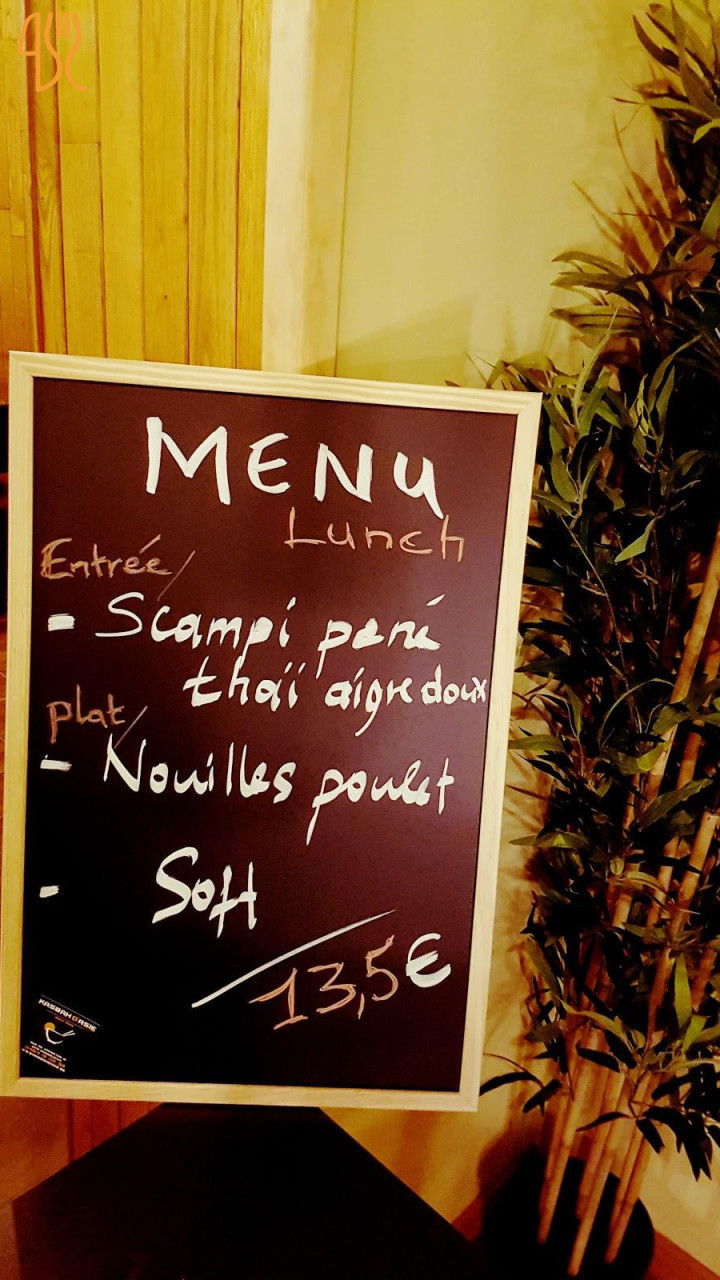 MENU
Lunch
Entrée/
- Scampi pané
thaï aigre doux
plat/
- Nouilles poulet
- Soft
13,5€
KASBAH D'ASIE